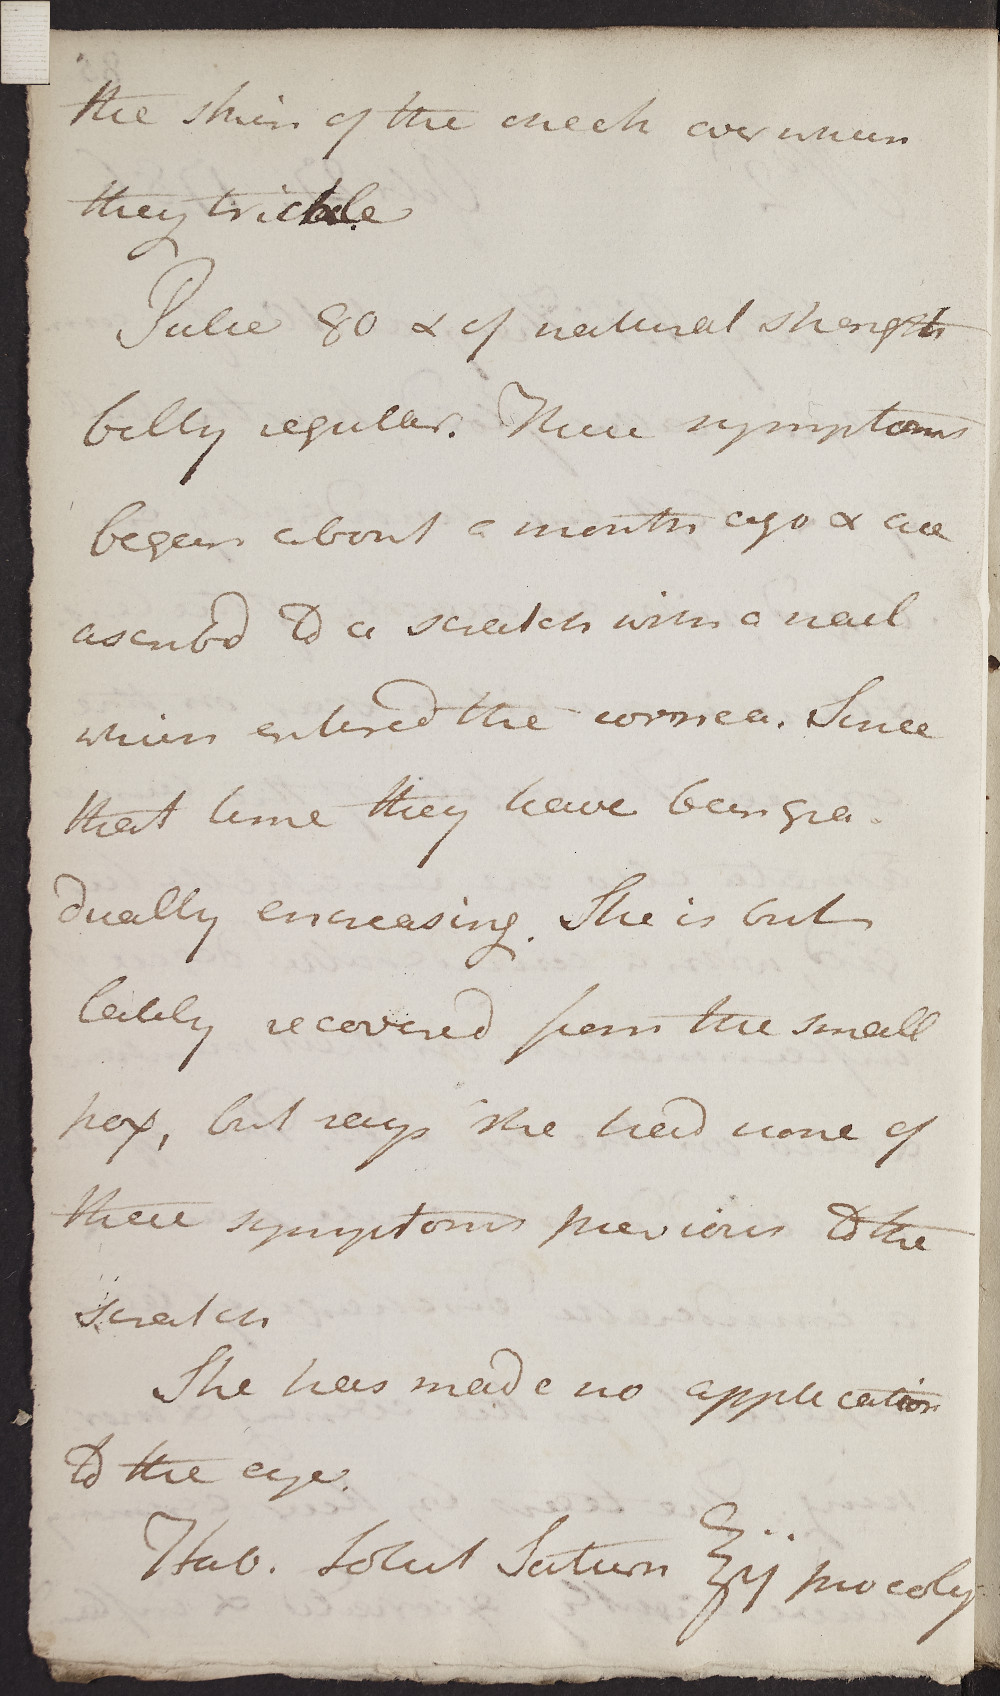 the skin of the cheek over which
they trickle
Pulse 80 & of natural strength
belly regular. These symptoms
began about a month ago & are
ascribd to a scratch with a nail
which entered the cornea. Since
that time they have been gra-
dually encreasing. She is but
lately recovered from the small
pox, but says she had none of
these symptoms previous to the
scratch
She has made no application
to the eye.
Hab. Solut Saturn ℥ij pro coly